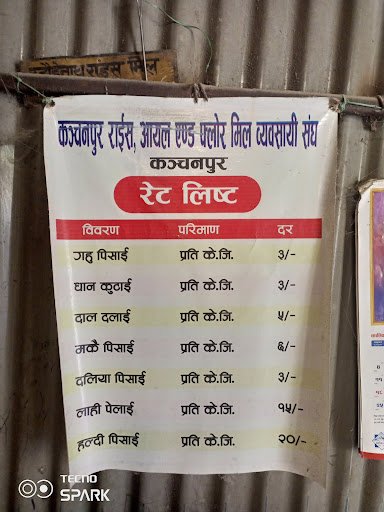 राईस मिल
कञ्चनपुर राईस, आयल एण्ड फ्लोर मिल व्यवसायी संघ
कञ्चनपुर
रेट लिष्ट
विवरण परिमाण दर
गहु पिसाई प्रति के.जि. ३/-
धान कुठाई प्रति के.जि. ३/-
दाल दलाई प्रति के.जि. ५/-
मकै पिसाई प्रति के.जि. ६/-
दलिया पिसाई प्रति के.जि. ३/-
लाही पेलाई प्रति के.जि. १५/-
हल्दी पिसाई प्रति के.जि. २०/-
TECNO
SPARK